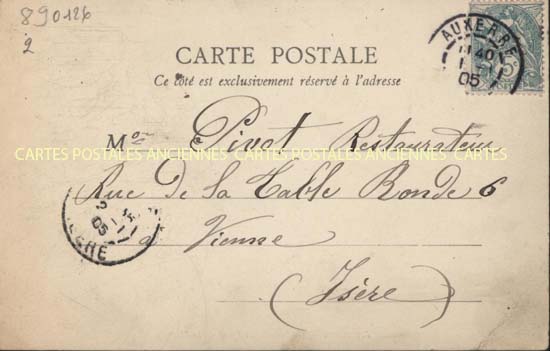 890126
2
CARTE POSTALE
Ce côté est exclusivement réservé à l'adresse
AUXERRE
11 40
05
5
Mon Pivot Restaurateur
CARTES POSTALES ANCIENNES CARTES POSTALES ANCIENNES CARTES
Rue De La Table Ronde 6
à Vienne
(Isère)
05
ISERE